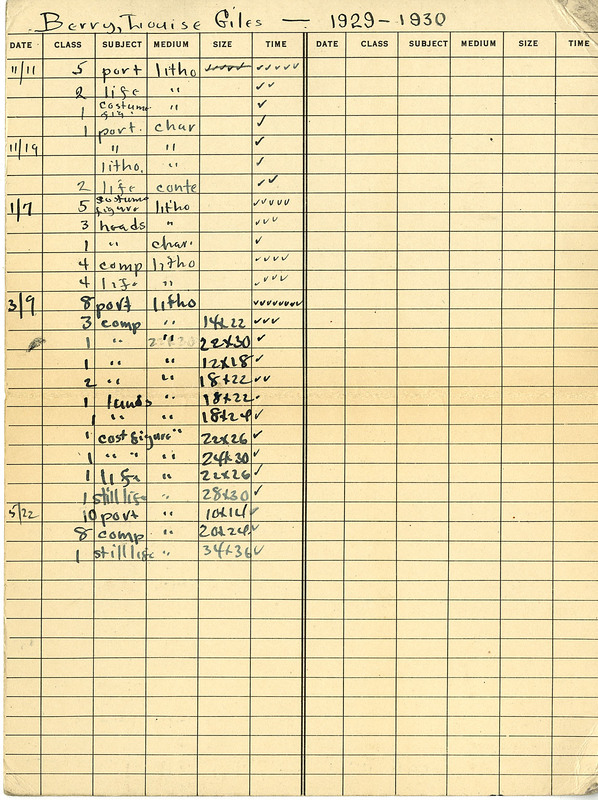 Berry, Louise Giles — 1929-1930
DATE CLASS SUBJECT MEDIUM SIZE TIME DATE CLASS SUBJECT MEDIUM SIZE TIME
11/11 5 port litho ✓✓✓✓✓
2 life " ✓✓
1 costume fig. " ✓
1 port. char ✓
11/19 " " ✓
litho. " ✓
2 life conte ✓✓
1/7 5 costume figure litho ✓✓✓✓✓
3 heads " ✓✓✓
1 " char. ✓
4 comp litho ✓✓✓✓
4 life " ✓✓✓✓
3/9 8 port litho ✓✓✓✓✓✓✓✓
3 comp " 14x22 ✓✓✓
1 " " 22x30 ✓
1 " " 12x18 ✓
2 " " 18x22 ✓✓
1 lands " 18x22 ✓
1 " " 18x24 ✓
1 cost figure " 22x26 ✓
1 " " " 24x30 ✓
1 life " 22x26 ✓
1 still life " 28x30 ✓
5/22 10 port " 10x14 ✓
8 comp " 20x24 ✓
1 still life " 34x36 ✓